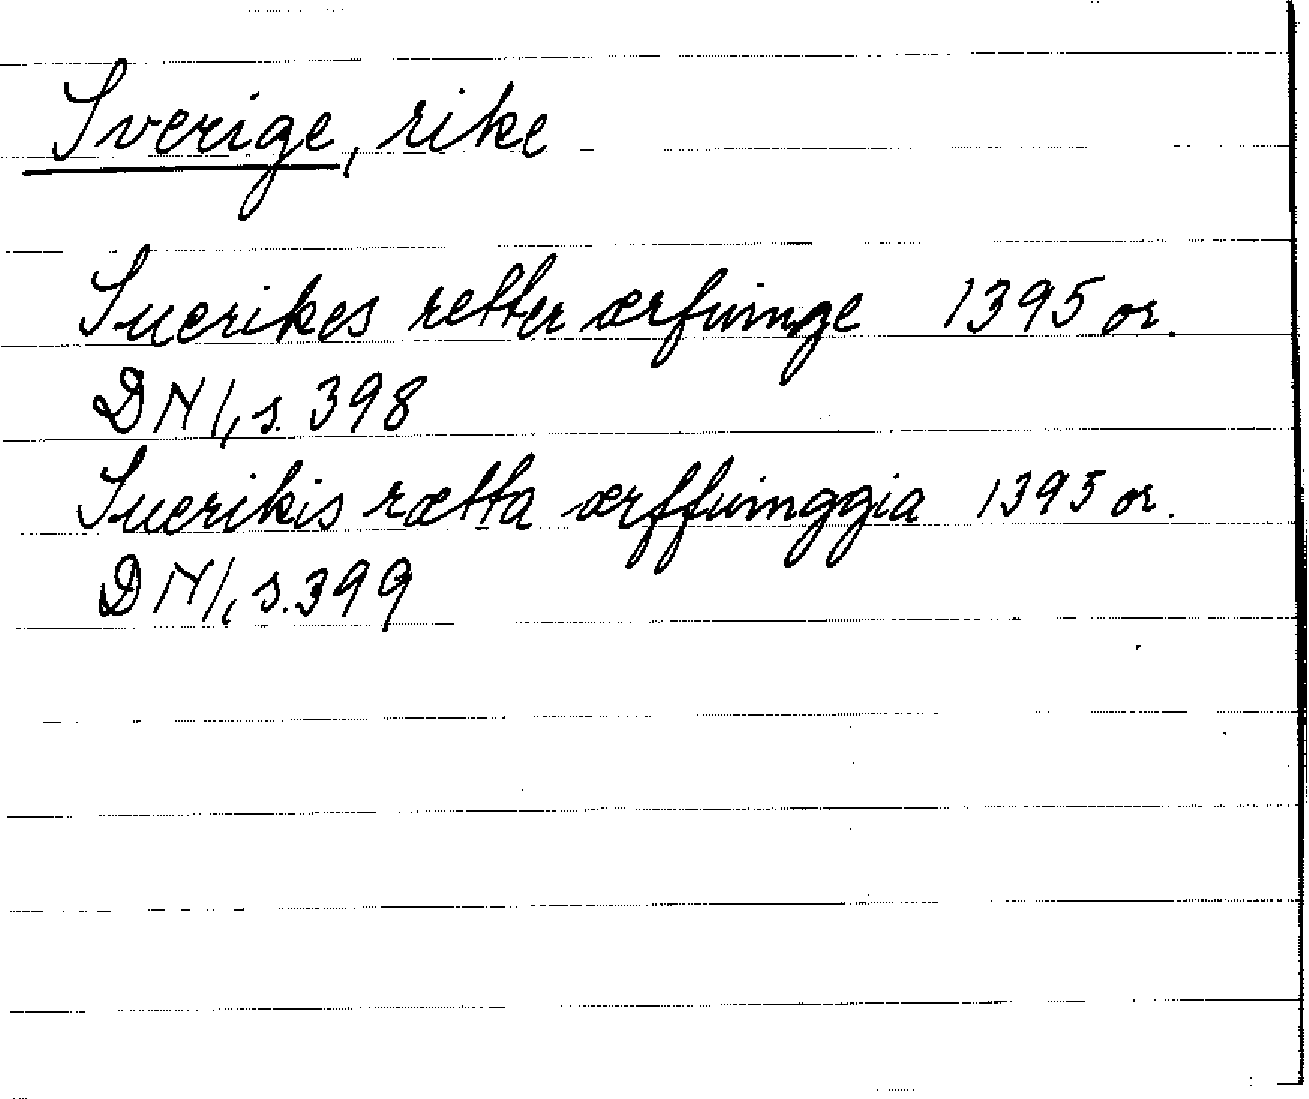 Sverige, rike
Suerikes retter ærfuinge 1395 or.
DN I, s. 398
Suerikis rætta ærffuinggia 1395 or.
DN I, s. 399